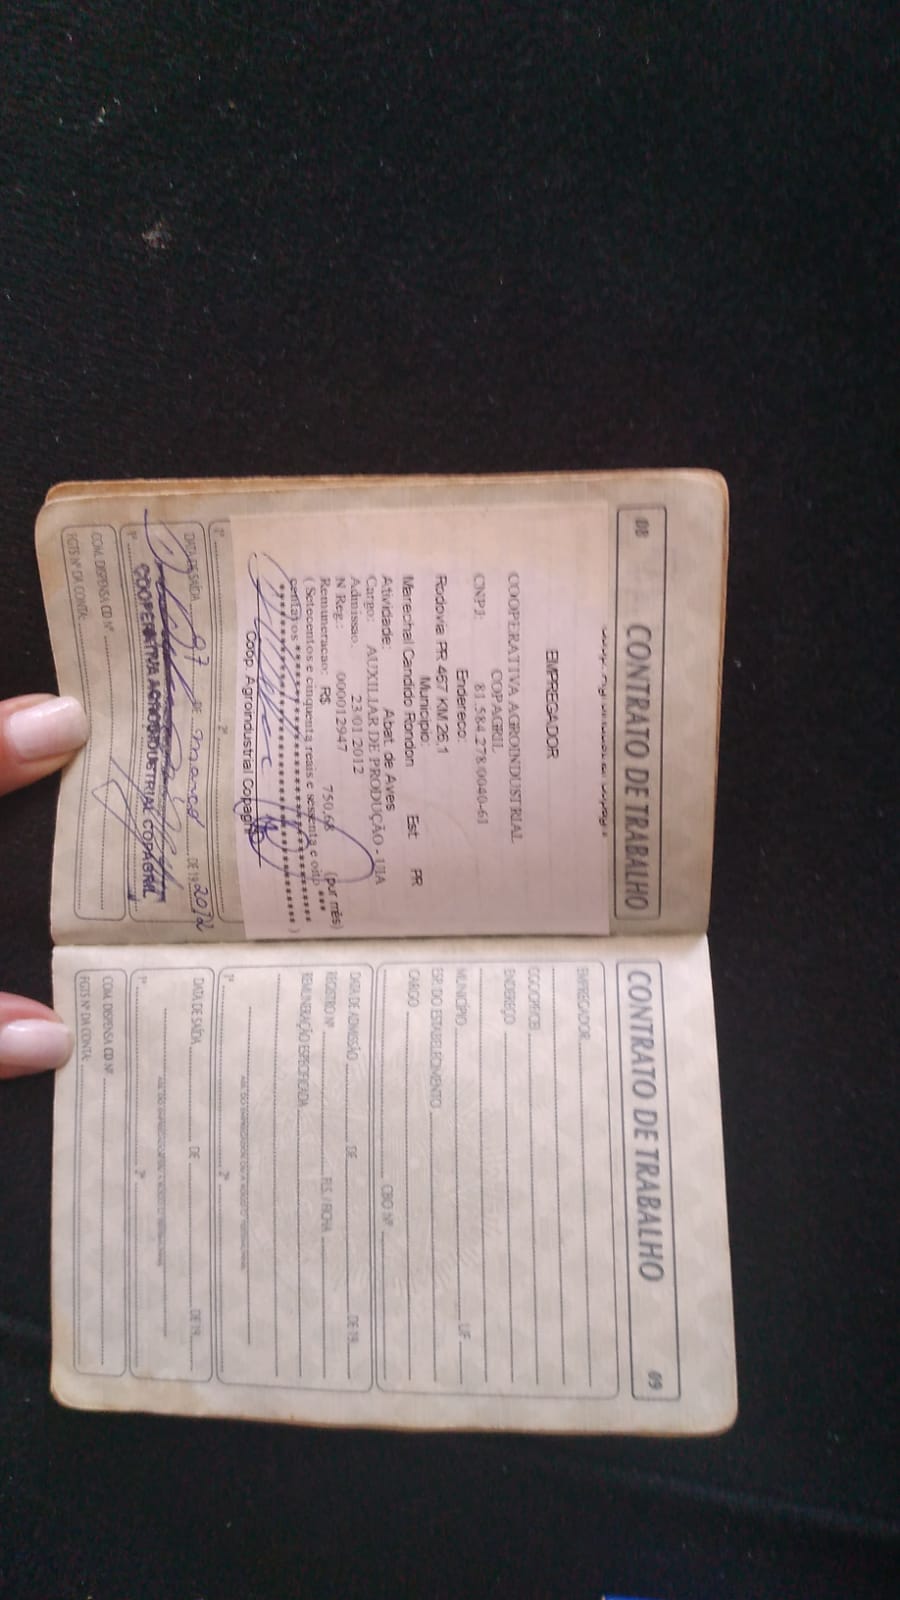 08 CONTRATO DE TRABALHO
EMPREGADOR
COOPERATIVA AGROINDUSTRIAL
COPAGRIL
CNPJ: 81.584.278/0040-61
Endereco:
Rodovia PR 467 KM 26,1
Municipio:
Marechal Candido Rondon Est: PR
Atividade: Abat. de Aves
Cargo: AUXILIAR DE PRODUÇÃO - UIA
Admissao: 23/01/2012
N Reg.: 000012947
Remuneracao: R$ 750,68 (por mês)
( Setecentos e cinquenta reais e sessenta e oito ***
centavos ***
Coop. Agroindustrial Copagril
1ª 2ª
DATA DE SAÍDA 07 DE março DE 19 2012
1ª
COOPERATIVA AGROINDUSTRIAL COPAGRIL
COM. DISPENSA CD Nº
FGTS Nº DA CONTA:
CONTRATO DE TRABALHO 09
EMPREGADOR
CGC/CPF/CEI
ENDEREÇO
MUNICÍPIO UF
ESP. DO ESTABELECIMENTO
CARGO
CBO Nº
DATA DE ADMISSÃO DE DE 19
REGISTRO Nº FLS. / FICHA
REMUNERAÇÃO ESPECIFICADA
1ª 2ª
DATA DE SAÍDA DE DE 19
1ª 2ª
COM. DISPENSA CD Nº
FGTS Nº DA CONTA: